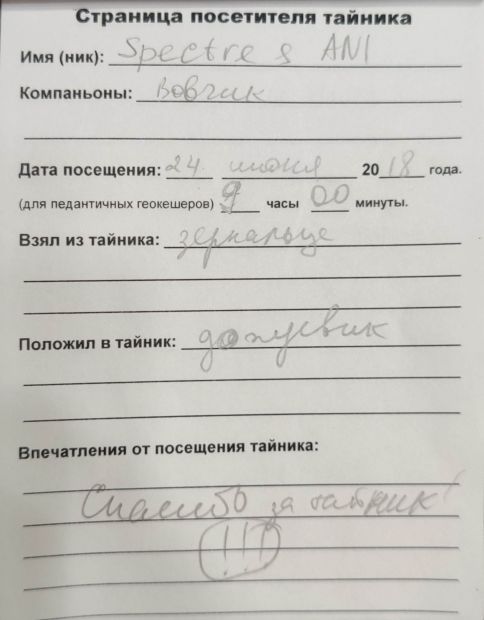 Страница посетителя тайника
Имя (ник): Spectre & ANI
Компаньоны: Вовчик
Дата посещения: 24 июня 2018 года.
(для педантичных геокешеров) 9 часы 00 минуты.
Взял из тайника: зеркальце
Положил в тайник: дождевик
Впечатления от посещения тайника:
Спасибо за тайник!
!!!